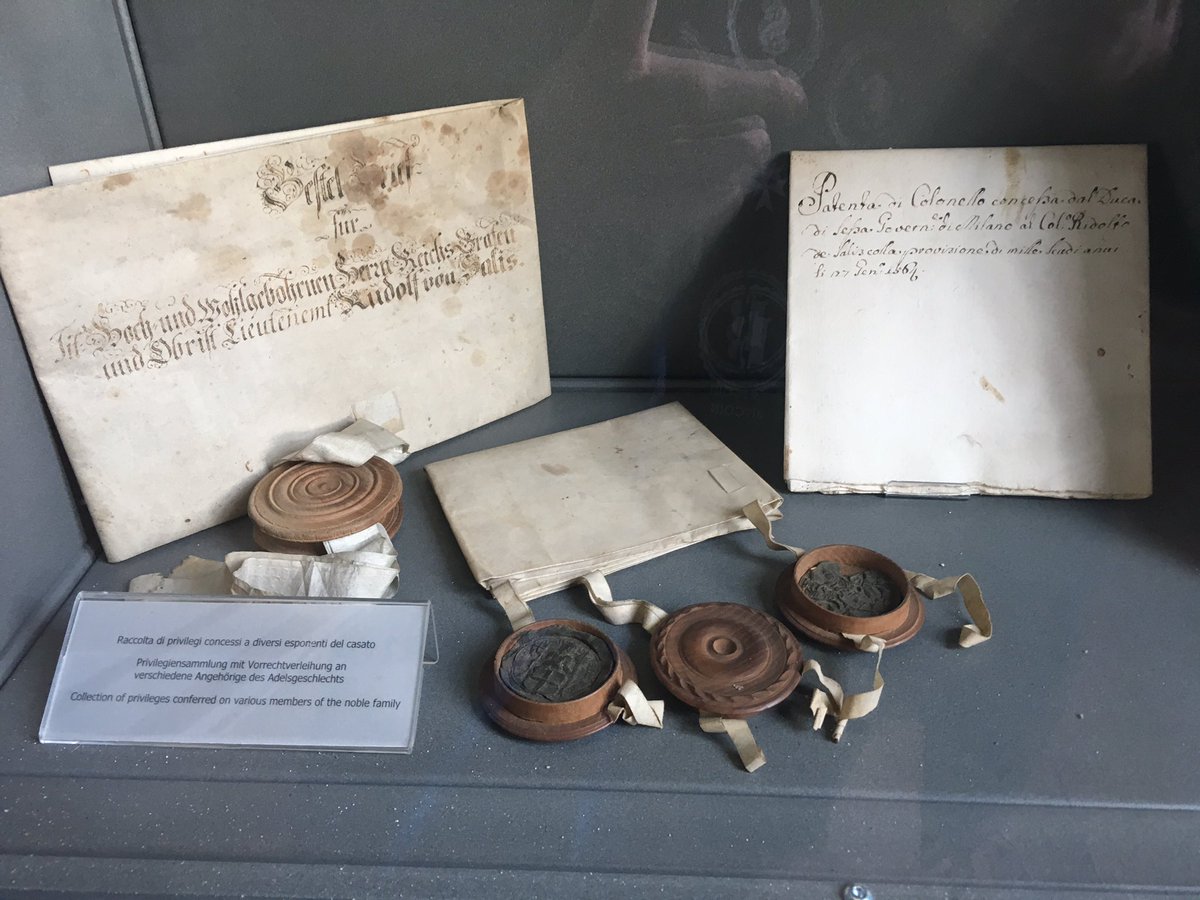 Bestel Brief
für
Tit. Hoch- und Wohlgebohrnen Herrn Reichs Grafen
und Obrist Lieutenent Rudolf von Salis
Patenta di Colonello concessa dal Duca
di Sessa Govern:re di Milano al Col:o Ridolfo
de Salis colla provisione di mille scudi annui
li 27 Gen:o 1564.
Raccolta di privilegi concessi a diversi esponenti del casato
Privilegiensammlung mit Vorrechtverleihung an
verschiedene Angehörige des Adelsgeschlechts
Collection of privileges conferred on various members of the noble family